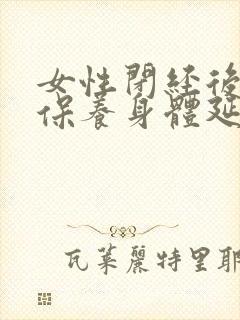 女性閉經後
保養身體延
瓦萊麗特里耶